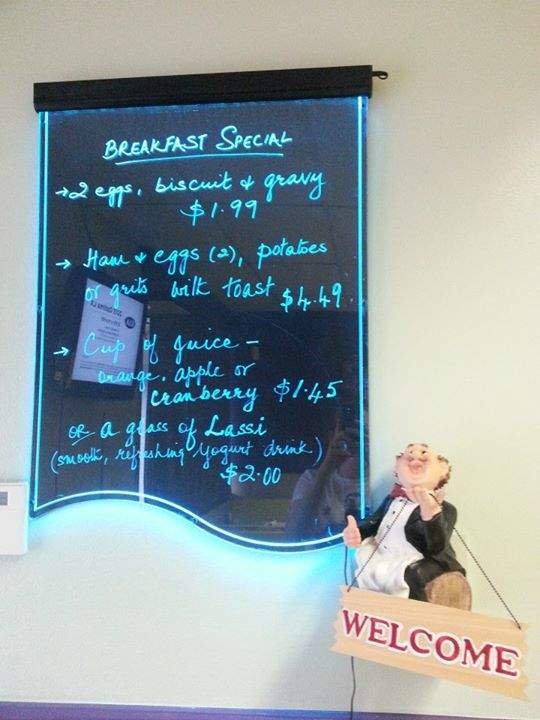 BREAKFAST SPECIAL
→ 2 eggs, biscuit & gravy
$1.99
→ Ham & eggs (2), potatoes
or grits with toast $4.49
→ Cup of Juice –
orange, apple or
cranberry $1.45
OR a glass of Lassi
(smooth, refreshing Yogurt drink)
$2.00
WELCOME